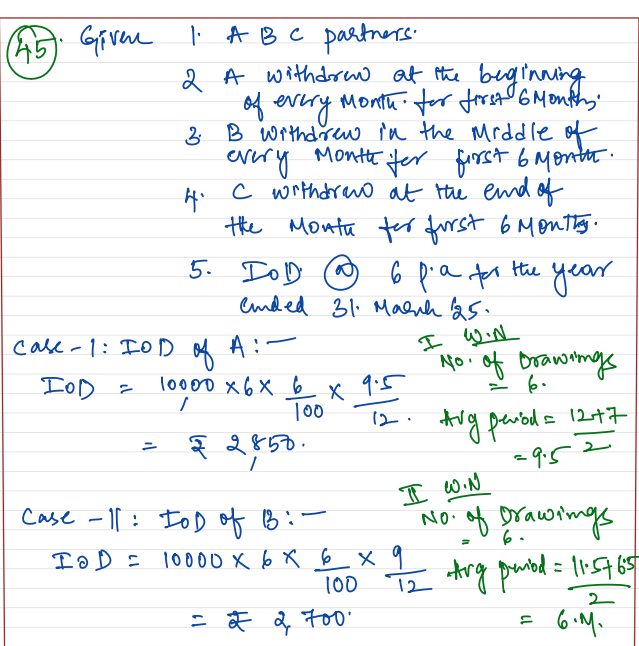 45. Given 1. A B C partners.
2 A withdrew at the beginning
of every Month. for first 6 Months.
3. B withdrew in the Middle of
every Month for first 6 Month.
4. C withdrew at the end of
the Month for first 6 Months.
5. IOD @ 6 p.a for the year
ended 31. March '25.
Case-I: IOD of A:-
I W.N
No. of Drawings
= 6.
IOD = 10,000 x 6 x 6/100 x 9.5/12.
Avg period = 12+7/2
= 9.5
= ₹ 2,850.
II W.N
Case-II: IOD of B:-
No. of Drawings
= 6.
IOD = 10000 x 6 x 6/100 x 9/12
Avg period = 11.5+6.5/2
= ₹ 2,700.
= 6.M.